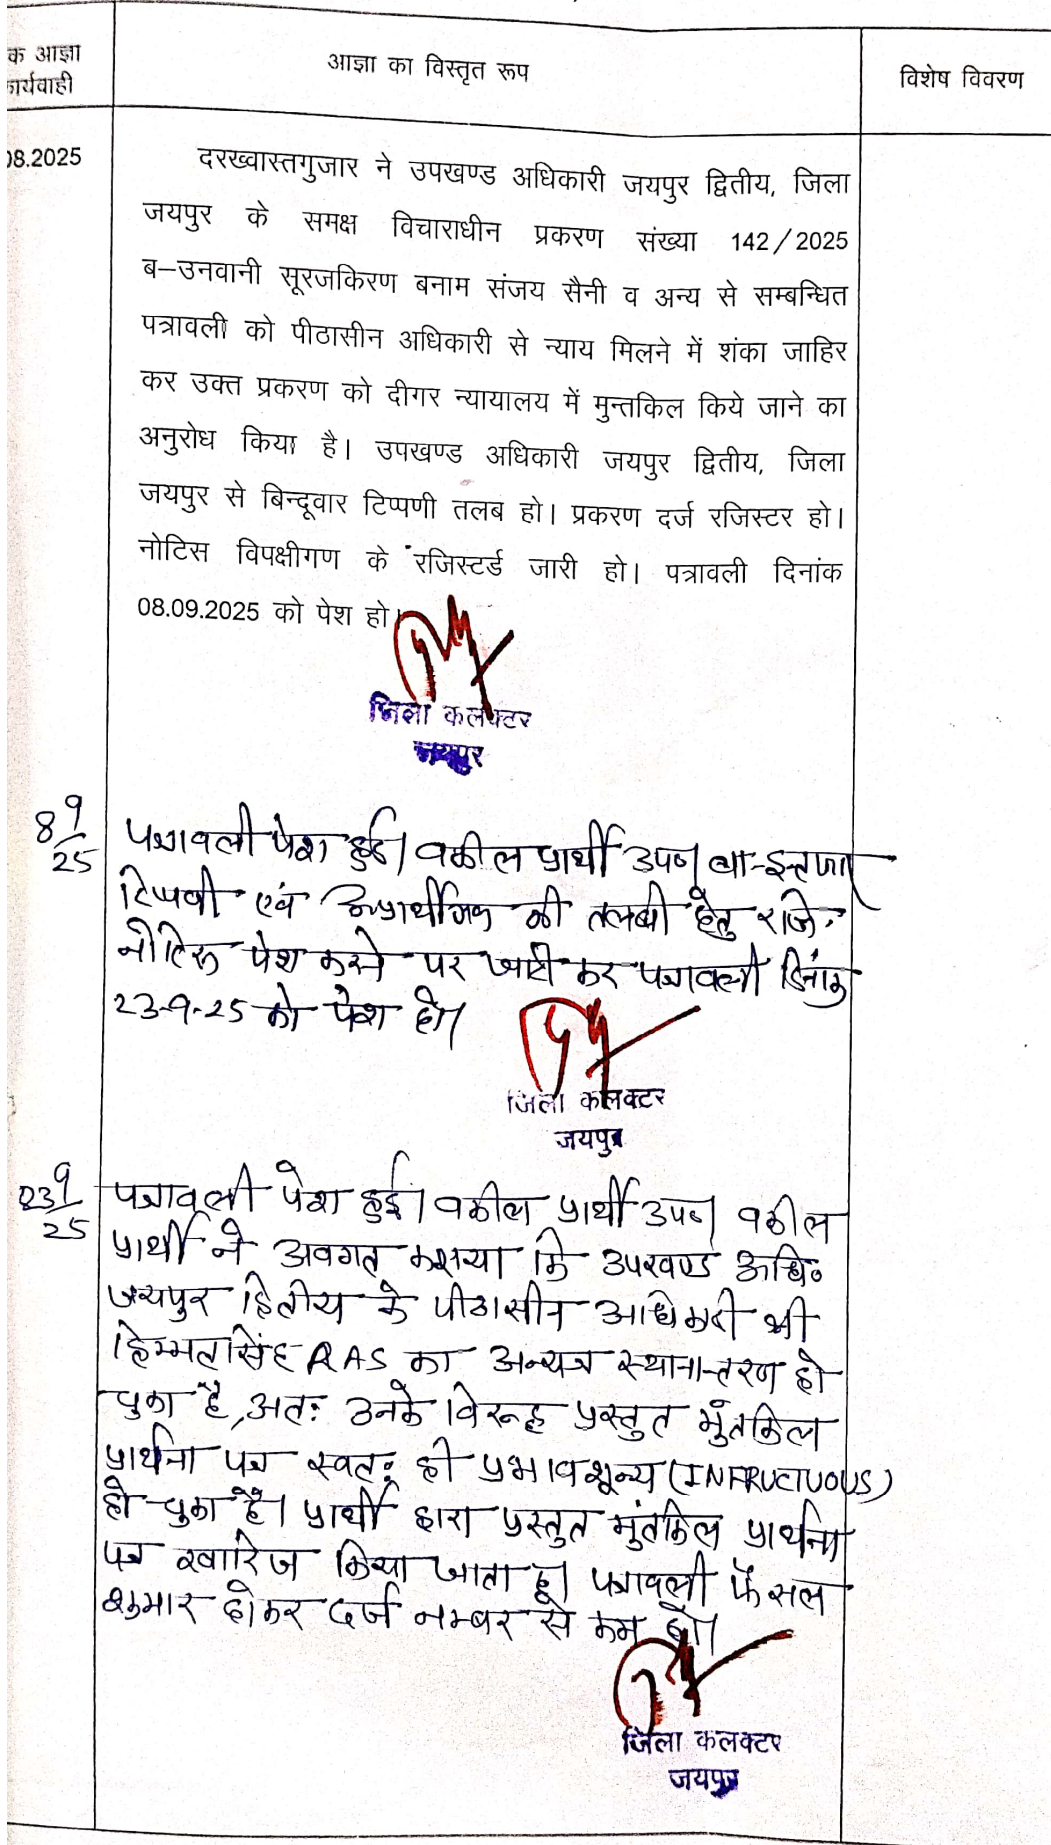 क आज्ञा
ार्यवाही
आज्ञा का विस्तृत रूप
विशेष विवरण
08.2025
दरख्वास्तगुजार ने उपखण्ड अधिकारी जयपुर द्वितीय, जिला
जयपुर के समक्ष विचाराधीन प्रकरण संख्या 142/2025
ब–उनवानी सूरजकिरण बनाम संजय सैनी व अन्य से सम्बन्धित
पत्रावली को पीठासीन अधिकारी से न्याय मिलने में शंका जाहिर
कर उक्त प्रकरण को दीगर न्यायालय में मुन्तकिल किये जाने का
अनुरोध किया है। उपखण्ड अधिकारी जयपुर द्वितीय, जिला
जयपुर से बिन्दूवार टिप्पणी तलब हो। प्रकरण दर्ज रजिस्टर हो।
नोटिस विपक्षीगण के रजिस्टर्ड जारी हो। पत्रावली दिनांक
08.09.2025 को पेश हो।
जिला कलक्टर
जयपुर
8/9/25
पत्रावली पेश हुई। वकील प्रार्थी उप०
टिप्पणी एवं अप्रार्थीगण की तलबी हेतु रजि.
नोटिस पेश करने पर जारी कर पत्रावली दिनांक
23-9-25 को पेश हो।
जिला कलक्टर
जयपुर
23/9/25
पत्रावली पेश हुई। वकील प्रार्थी उप०। वकील
प्रार्थी ने अवगत कराया कि उपखण्ड अधि०
जयपुर द्वितीय के पीठासीन अधिकारी श्री
हिम्मतसिंह RAS का अन्यत्र स्थानान्तरण हो
चुका है, अतः उनके विरूद्ध प्रस्तुत मुंतकिल
प्रार्थना पत्र स्वतः ही प्रभावशून्य (INFRUCTUOUS)
हो चुका है। प्रार्थी द्वारा प्रस्तुत मुंतकिल प्रार्थना
पत्र खारिज किया जाता है। पत्रावली फैसल
शुमार होकर दर्ज नम्बर से कम हो।
जिला कलक्टर
जयपुर